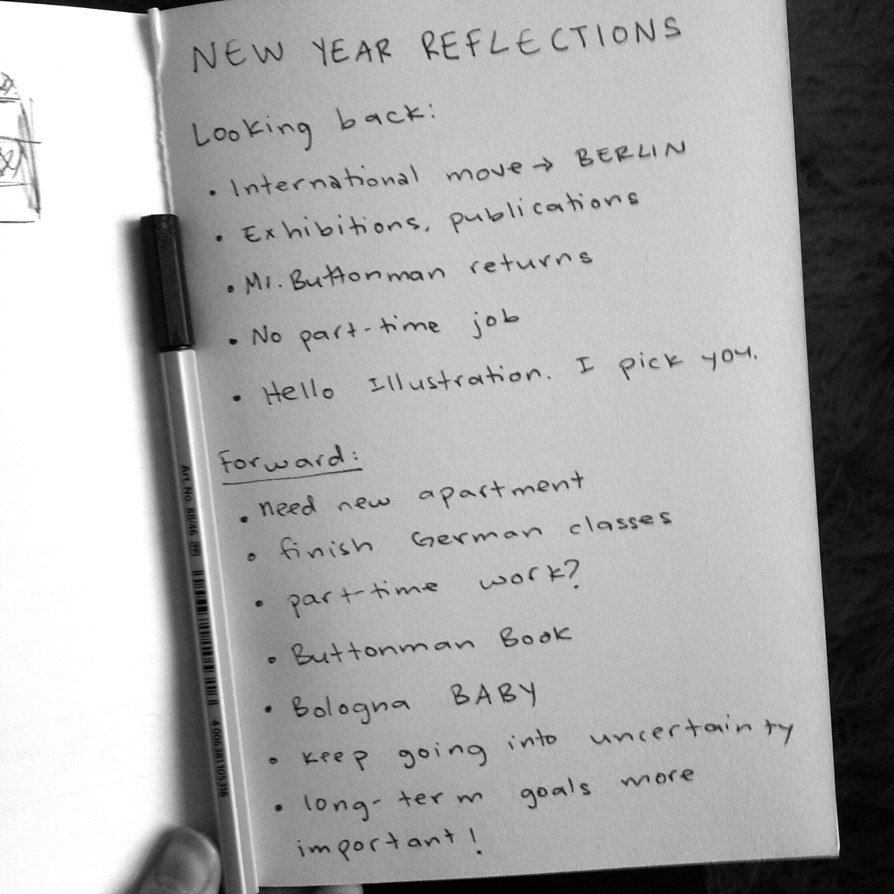 NEW YEAR REFLECTIONS
Looking back:
• International move → BERLIN
• Exhibitions, publications
• Mr. Buttonman returns
• No part-time job
• Hello Illustration. I pick you.
Forward:
• need new apartment
• finish German classes
• part-time work?
• Buttonman Book
• Bologna BABY
• keep going into uncertainty
• long-term goals more
important!
Art. No. 88/46
4 006381 105316